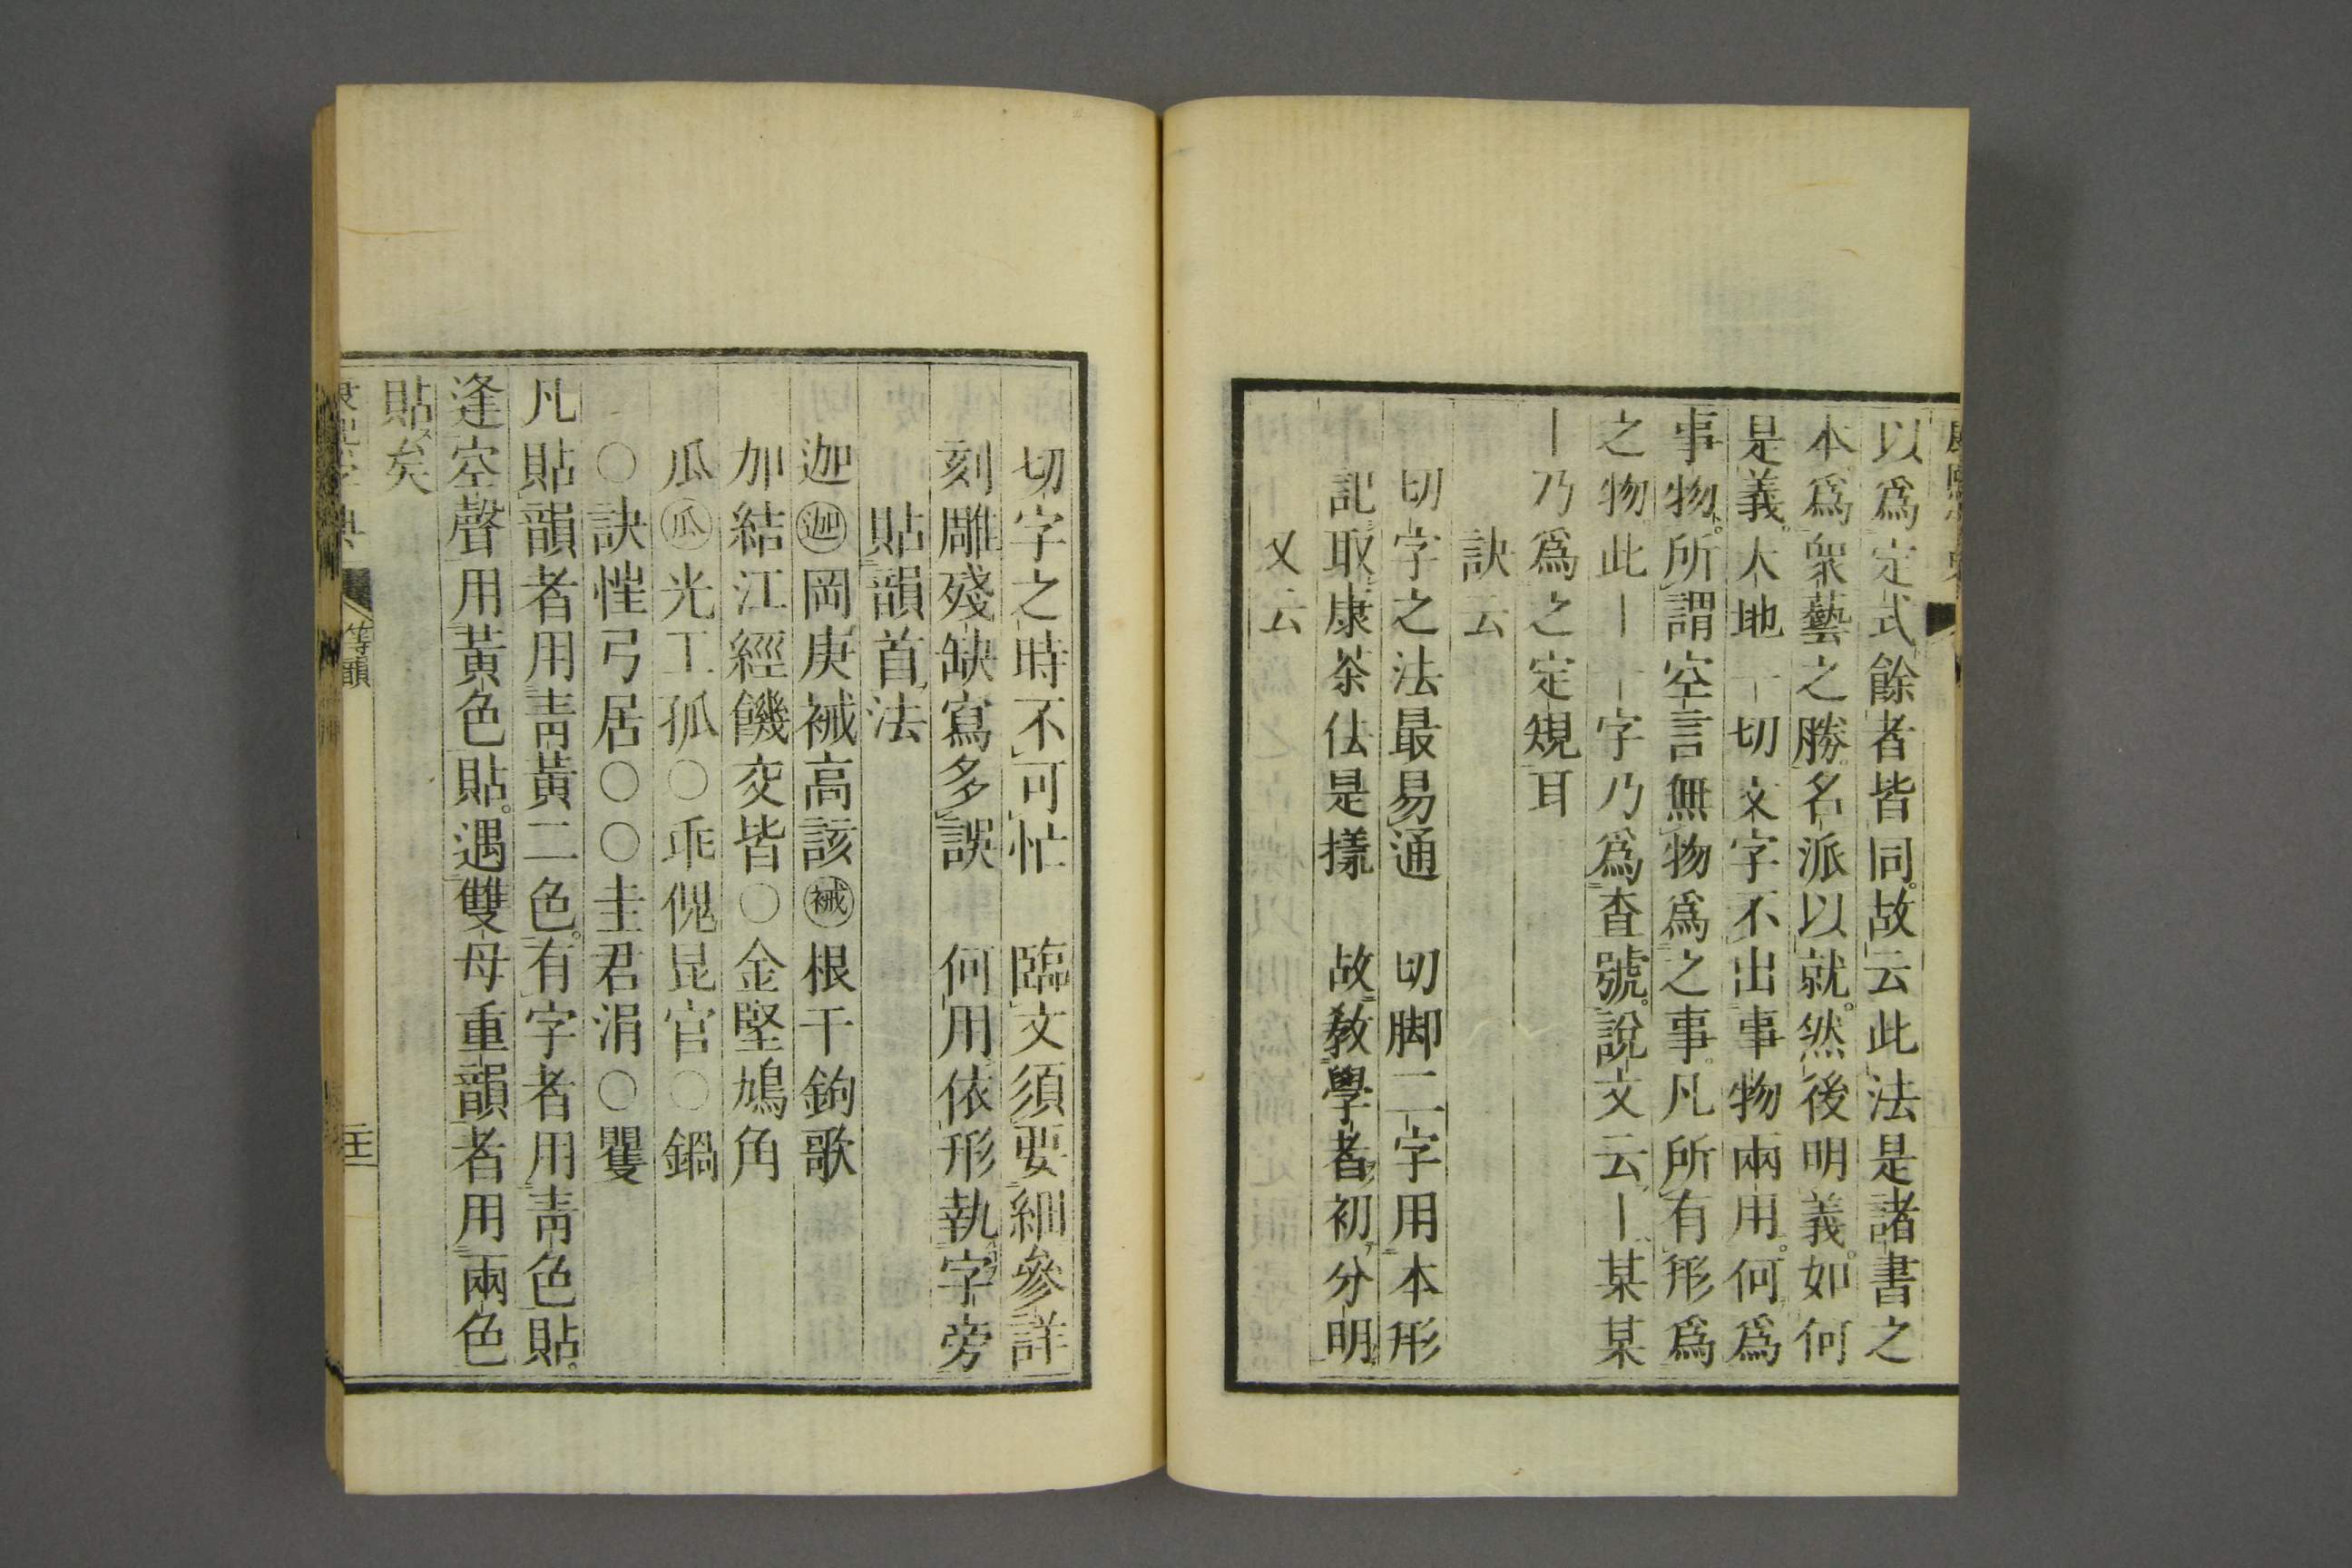 以爲定式餘者皆同。故云此法是諸書之
本爲衆藝之勝。名派以就。然後明義。如何
是義。大地一切文字不出事物兩用。何爲
事物。所謂空言無物爲之事。凡所有形爲
之物。此丨一字乃爲查號。說文云丨某某
丨乃爲之定規耳
訣云
切字之法最易通 切脚二字用本形
記取康茶佉是㨾 故教學者初分明
又云
切字之時不可忙 臨文須要細參詳
刻雕殘缺寫多誤 何用依形執字旁
貼韻首法
迦㊀岡庚祴高該祴根干鉤歌
加結江經饑交皆〇金堅鳩角
瓜瓜光工孤〇乖傀昆官〇鍋
〇訣恇弓居〇〇圭君涓〇瞿
凡貼韻者用靑黃二色。有字者用靑色貼。
逢空聲用黃色貼。遇雙母重韻者用兩色
貼矣
康熙字典
等韻